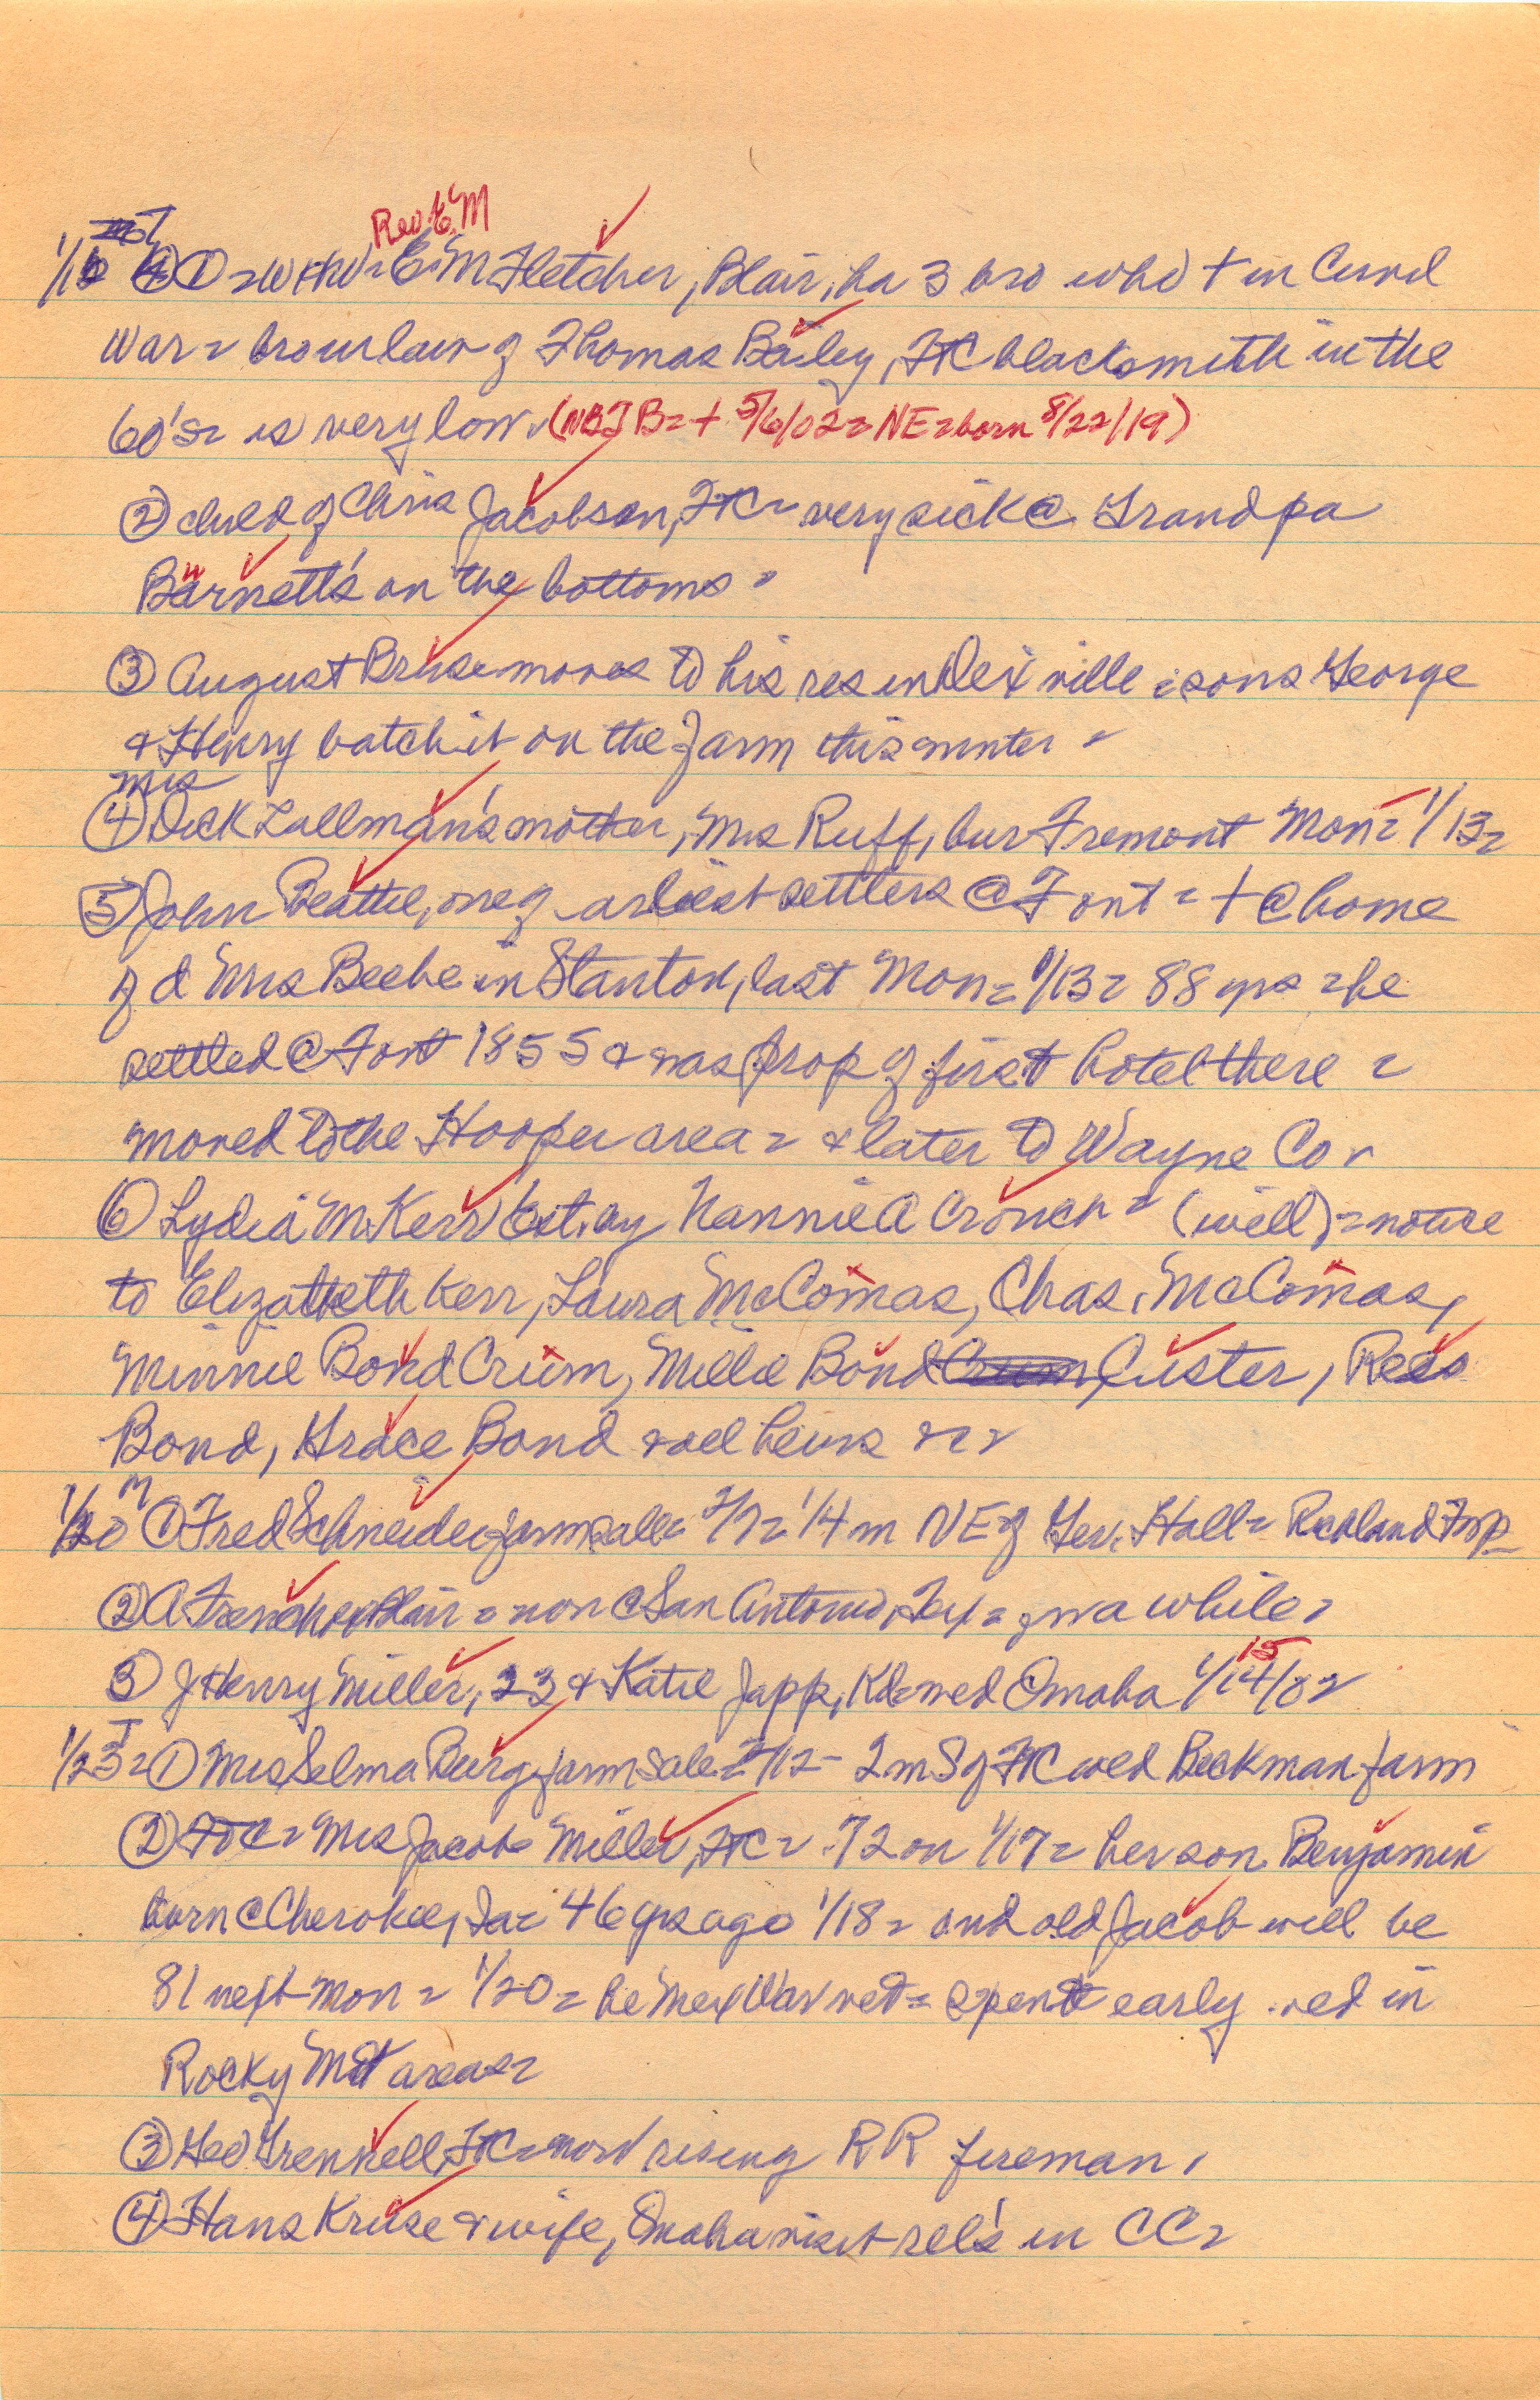 Rev. E. M
1/16 T ① = E. M Fletcher, Blair, ha 3 bro who + in Civil
War = bro in law of Thomas Bailey, FtC blacksmith in the
60's = is very low. (NB TB = + 5/6/02 = NE = born 8/22/19)
② child of Chris Jacobsen, FtC = very sick @ Grandpa
Barnett's on the bottoms =
③ August Bruse moves to his res in DeX ville = sons George
& Henry batch it on the farm this winter =
mrs
④ Dick Zallman's mother, Mrs Ruff, bur Fremont Mon = 1/13 =
⑤ John Beattie, one of earliest settlers @ Font = + @ home
of d Mrs Beebe in Stanton, last Mon = 1/13 = 88 yrs = he
settled @ Font 1855 & was prop of first hotel there =
moved to the Hooper area = & later to Wayne Co =
⑥ Lydia M. Kerr Est. by Nannie A Crouch = (will) = notice
to Elizabeth Kerr, Laura McComas, Chas. McComas,
Minnie Bond Crum, Millie Bond Custer, Rees
Bond, Grace Bond & all heirs &c =
1/20 M ① Fred Schneider farm sale = 2/7 = 1/4 m NE of Ger. Hall = Richland Twp
② A French ex Blair = now @ San Antonio, Tex = for a while =
③ J Henry Miller, 23 & Katie Japp, Kd = wed Omaha 1/14/02 15
1/23 T = ① Mrs Selma Burg farm sale = 2/12 - 2 m S of FtC = old Beckman farm
② FtC = Mrs Jacob Miller, FtC = 72 on 1/17 = her son Benjamin
born @ Cherokee, Ia = 46 yrs ago 1/18 = and old Jacob will be
81 next Mon = 1/20 = he Mex War vet = spent early in
Rocky Mt areas =
③ Geo Grennell, FtC = now rising RR fireman,
④ Hans Kruse & wife, Omaha visit rel's in CC =